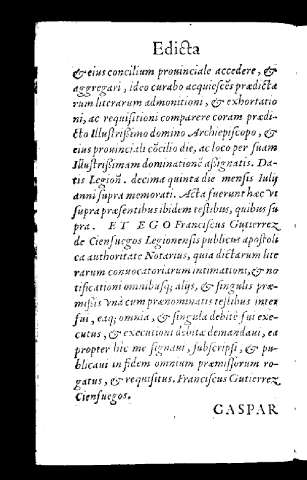 Edicta
& eius concilium prouinciale accedere, &
aggregari, ideo curabo acquiescēs prædicta
rum literarum admonitioni, & exhortatio
ni, ac requisitioni comparere coram prædi-
cto Illustrißimo domino Archiepiscopo, &
eius prouinciali cōcilio die, ac loco per suam
Illustrißimam dominationē aßignatis. Da-
tis Legioñ. decima quinta die mensis Iulij
anni supra memorati. Acta fuerunt hæc vt
supra præsentibus ibidem testibus, quibus su
pra. ET EGO Franciscus Gutierrez
de Cienfuegos Legionensis publicus apostoli
ca authoritate Notarius, quia dictarum lite
rarum conuocatoriarum intimationi, & no
tificationi omnibusq; alijs, & singulis præ-
mißis vnà cum prænominatis testibus inter
fui, eaq; omnia, & singula debitè fui exe-
cutus, & executioni debitæ demandaui, ea
propter hic me signaui, subscripsi, & pu-
blicaui in fidem omnium præmissorum ro-
gatus, & requisitus. Franciscus Gutierrez
Cienfuegos.
GASPAR